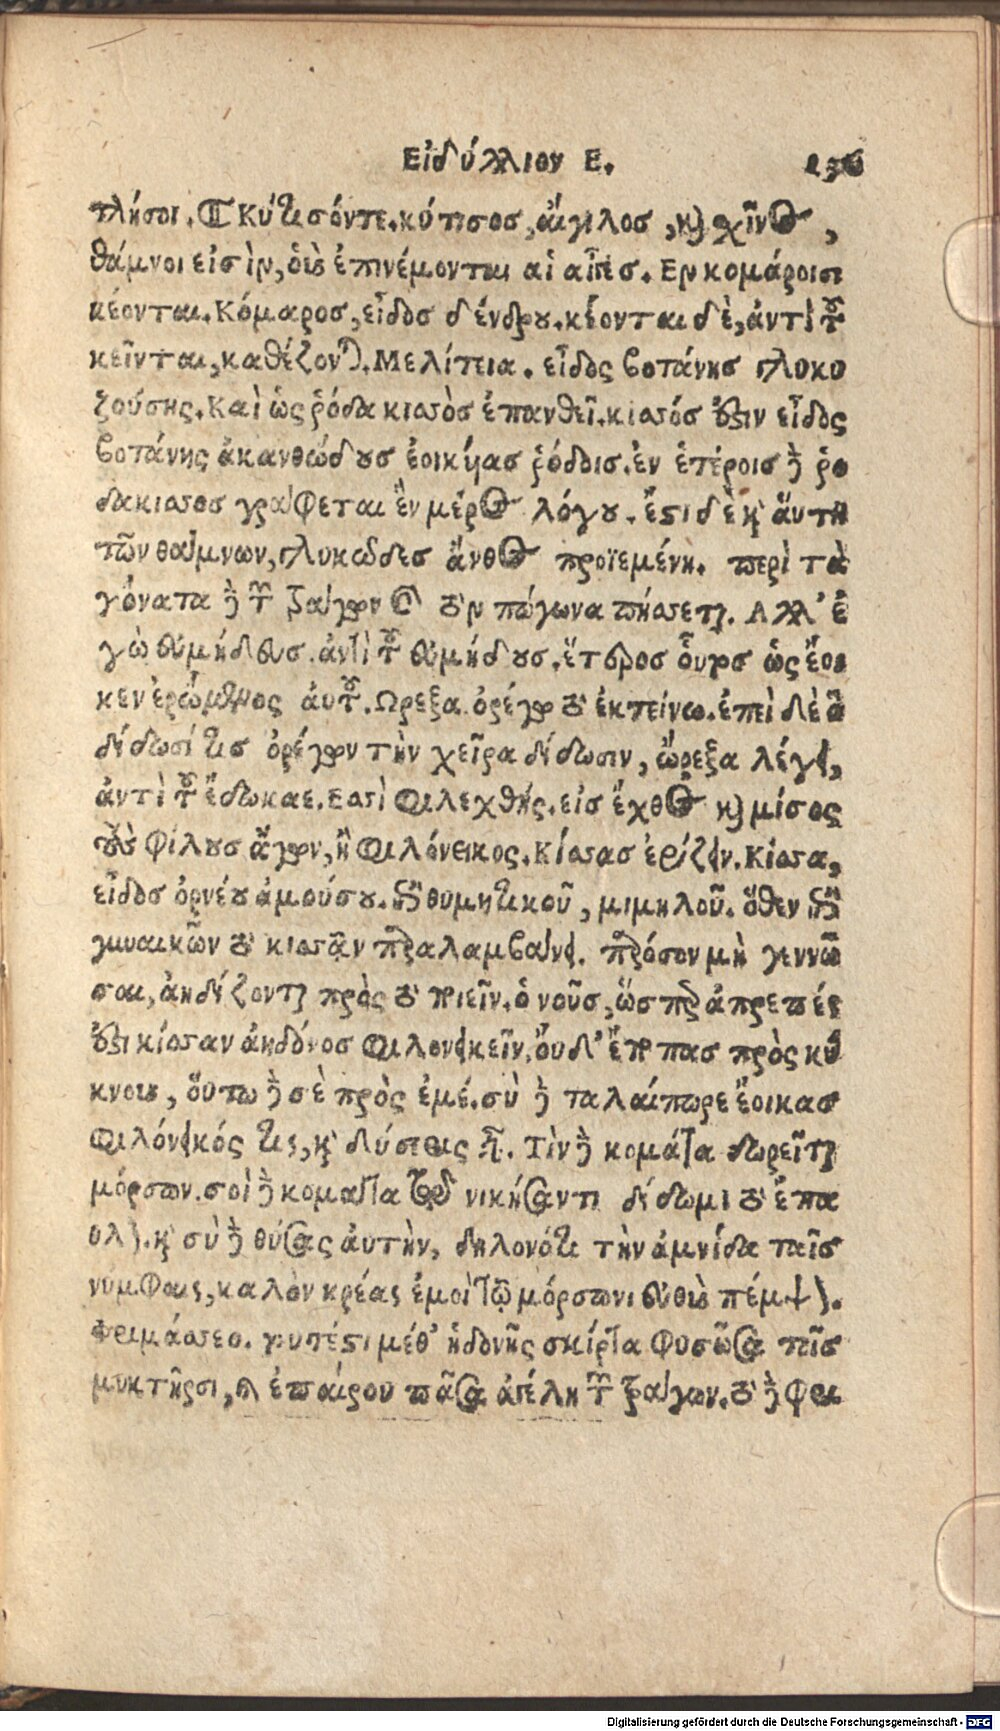 Εἰδύλλιου Ε. 136
πλήσοι. ¶ Κύτισόντε. κύτισοσ, αἴγιλοσ, καὶ χῖνος,
θάμνοι εἰσὶν, οὓς ἐπινέμονται αἱ αἶγεσ. Εν κομάροισι
κέονται. Κόμαροσ, εἶδοσ δένδρου. κέονται δὲ, ἀντὶ τοῦ
κεῖνται, καθέζονται. Μελίτεια. εἶδος βοτάνησ γλυκυ
ζούσης. Καὶ ὡς ῥόδα κισσὸσ ἐπανθεῖ. κισσός ἐστιν εἶδος
βοτάνης ἀκανθώδουσ ἐοικυίασ ῥόδοισ. ἐν ἑτέροισ δὲ ῥο
δακισσοσ γράφεται ἓν μέρος λόγου. ἔστι δὲ καὶ ἄυτη
τῶν θάμνων, γλυκῶδεσ ἄνθος προϊεμένη. περὶ τὰ
γόνατα δὲ τῶν τράγων καὶ τὸν πώγωνα πήσσεται. Αλλ' ἐ
γὼ εὐμήδευσ. ἀντὶ τοῦ εὐμήδουσ. ἕτεροσ οὗτοσ ὡς ἔοι
κεν ἐρώμενος ἀυτοῦ. Ωρεξα. ὀρέγω τὸ ἐκτείνω. ἐπεὶ δὲ ἃ
δίδωσί τισ ὀρέγων τὴν χεῖρα δίδωσιν, ὤρεξα λέγει,
ἀντὶ τοῦ ἔδωκαε. Εσσὶ φιλεχθής. εἰσ ἔχθος καὶ μίσος
τοὺς φίλουσ ἄγων, ἢ φιλόνεικος. Κίσσασ ἐρίζειν. Κίσσα,
εἶδοσ ὀρνέου ἀμούσου. ἐπιθυμητικοῦ, μιμηλοῦ. ὅθεν ἐπὶ
γυναικῶν τὸ κισσᾷν παραλαμβάνει. παρόσον μὴ γεννῶ
σαι, ἀηδίζονται πρὸς τὸ πιεῖν. ὁ νοῦσ, ὥσπερ ἀπρεπές
ἐστι κίσσαν ἀηδόνοσ φιλονεικεῖν, οὐδ' ἔποπασ πρὸς κύ
κνους, ὅυτω δὲ σὲ πρὸς ἐμέ. σὺ δὲ ταλαίπωρε ἔοικασ
φιλόνεικός τις, καὶ δύσερις εἶναι. Τὶν δὲ κομάτα δωρεῖται
μόρσων. σοὶ δὲ κομάτα τῷ νικήσαντι δίδωμι τὸ ἔπα
θλον. καὶ σὺ δὲ θύσας ἀυτὴν, δηλονότι τὴν ἀμνίδα ταῖσ
νύμφαις, καλὸν κρέας ἐμοὶ τῷ μόρσωνι εὐθὺς πέμψον.
Φριμάσσεο. γουτέστι μέθ' ἡδονῆς σκίρτα φυσῶσα τοῖσ
μυκτῆρσι, καὶ ἐπαίρου πᾶσα ἀγέλη τῶν τράγων. τὸ δὲ φρι
Digitalisierung gefördert durch die Deutsche Forschungsgemeinschaft - DFG